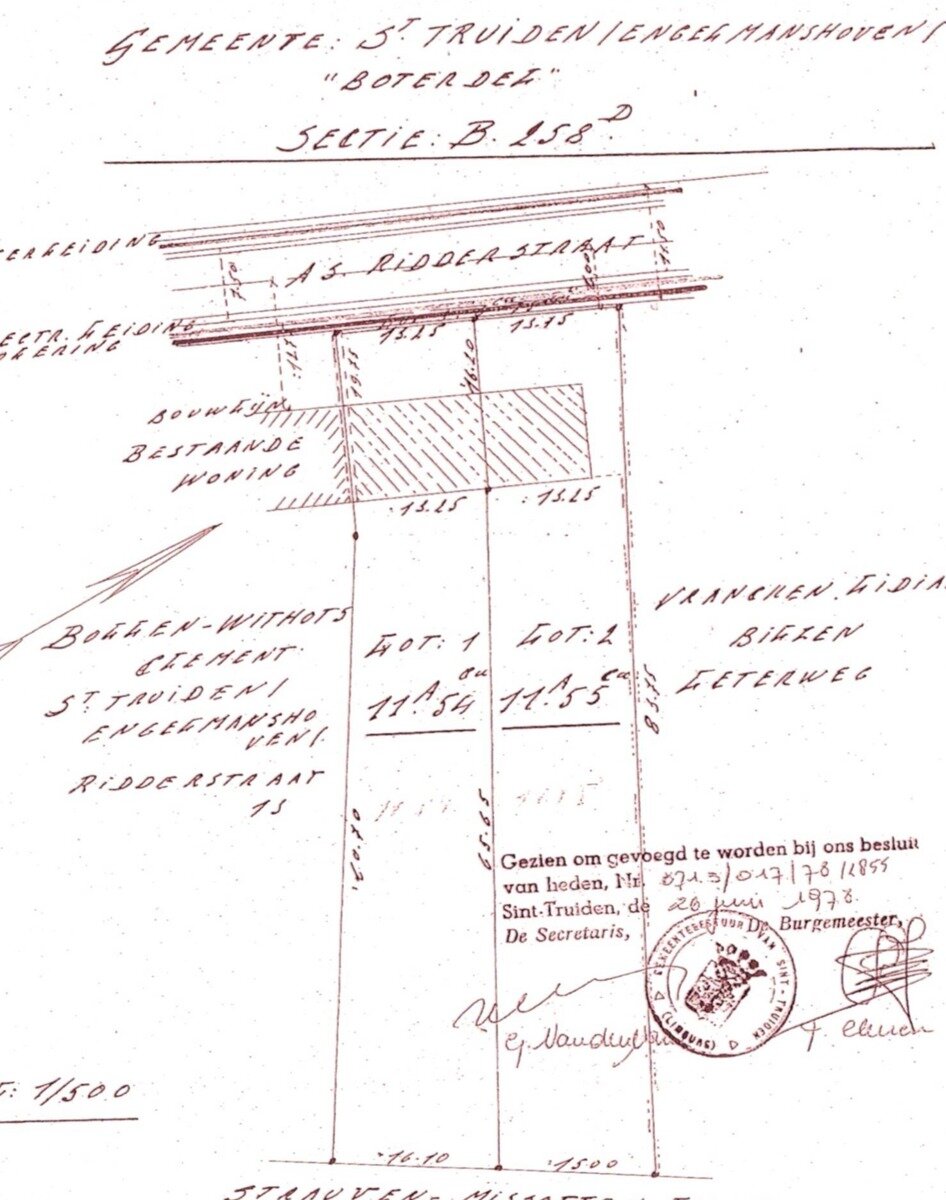 GEMEENTE: ST TRUIDEN/ENGELMANSHOVEN/
"BOTERDEL"
SECTIE: B. 258D
ERLEIDING
AS. RIDDERSTRAAT
7.50
11.10
ECTR. LEIDING
13.25
13.75
16.20
BOUWLIJN
BESTAANDE
WONING
13.25
13.25
BOLLEN-WITHOFS
CLEMENT.
ST. TRUIDEN/
ENGELMANSHO
VEN/.
RIDDERSTRAAT
15
LOT: 1
11A 54ca
LOT: 2
11A 55ca
VRANCKEN. LIDIA
BILZEN
LETERWEG
83.75
60.70
65.65
Gezien om gevoegd te worden bij ons besluit
van heden, Nr. 8713/017/78/1855
Sint-Truiden, de 26 juni 1978.
De Secretaris, De Burgemeester,
GEMEENTEBESTUUR VAN SINT-TRUIDEN (LIMBURG)
T: 1/500
16.10
15.00
STRAUVEN-